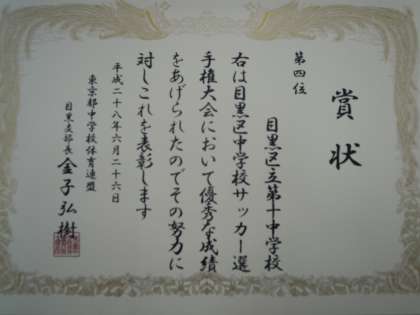 賞状
第四位
目黒区立第十中学校
右は目黒区中学校サッカー選
手権大会において優秀な成績
をあげられたのでその努力に
対しこれを表彰します
平成二十八年六月二十六日
東京都中学校体育連盟
目黒支部長 金子弘樹